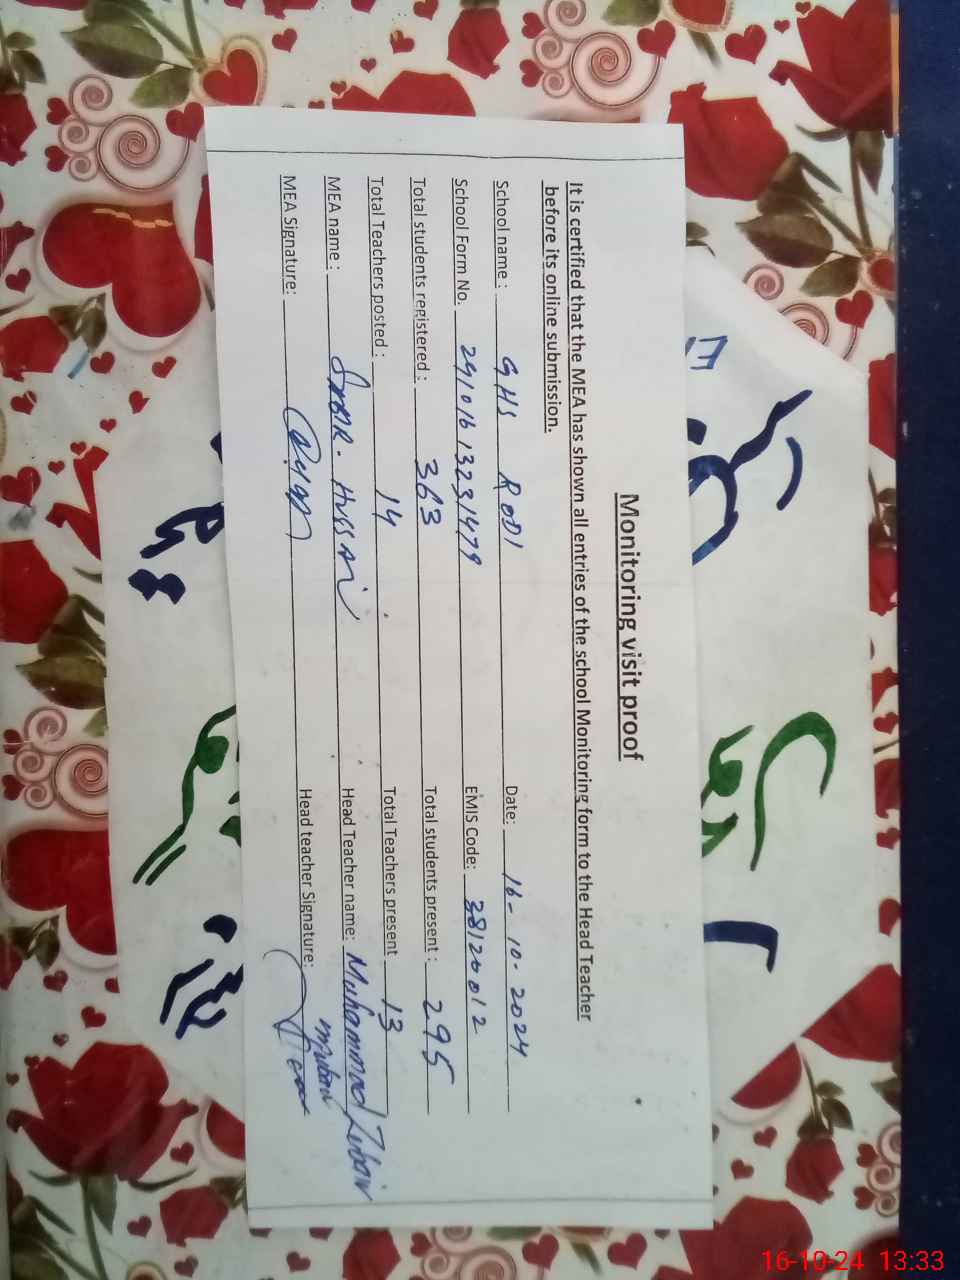 Monitoring visit proof
It is certified that the MEA has shown all entries of the school Monitoring form to the Head Teacher
before its online submission.
School name : GHS RODI Date: 16-10-2024
School Form No. 291016 13231479 EMIS Code: 38120012
Total students registered : 363 Total students present : 295
Total Teachers posted : 14 Total Teachers present 13
MEA name : Hussain Head Teacher name: Muhammad Zubair
MEA Signature: Head teacher Signature:
16-10-24 13:33